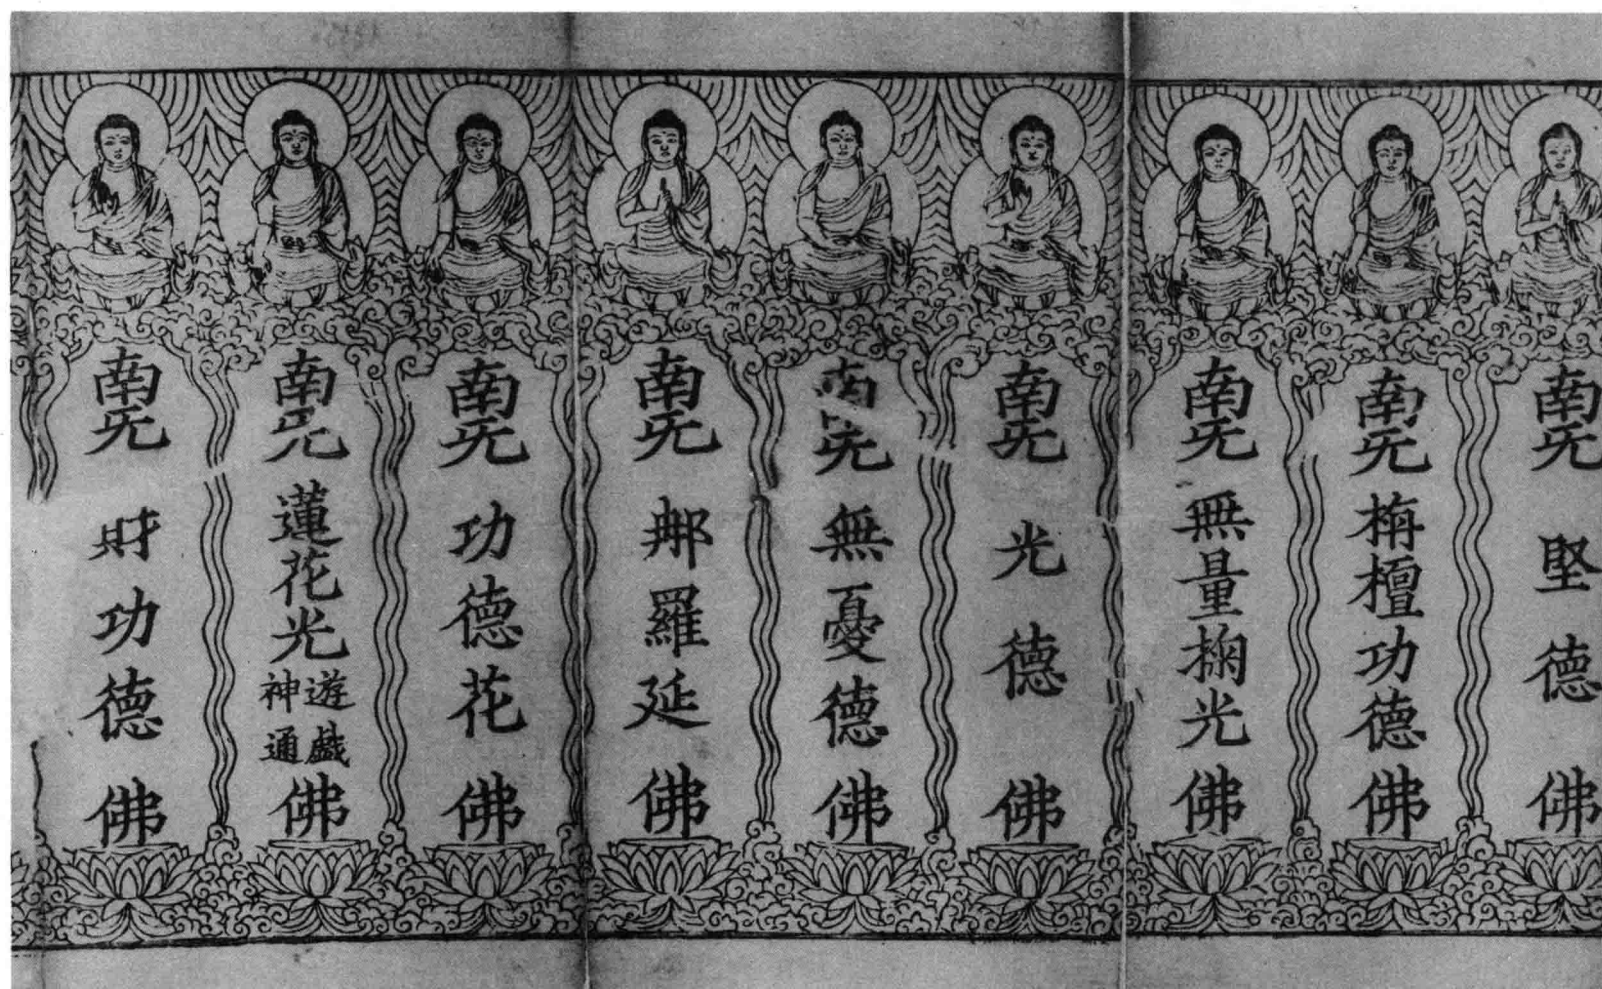 南无堅德佛
南无栴檀功德佛
南无無量掬光佛
南无光德佛
南无無憂德佛
南无那羅延佛
南无功德花佛
南无蓮花光遊戯神通佛
南无財功德佛